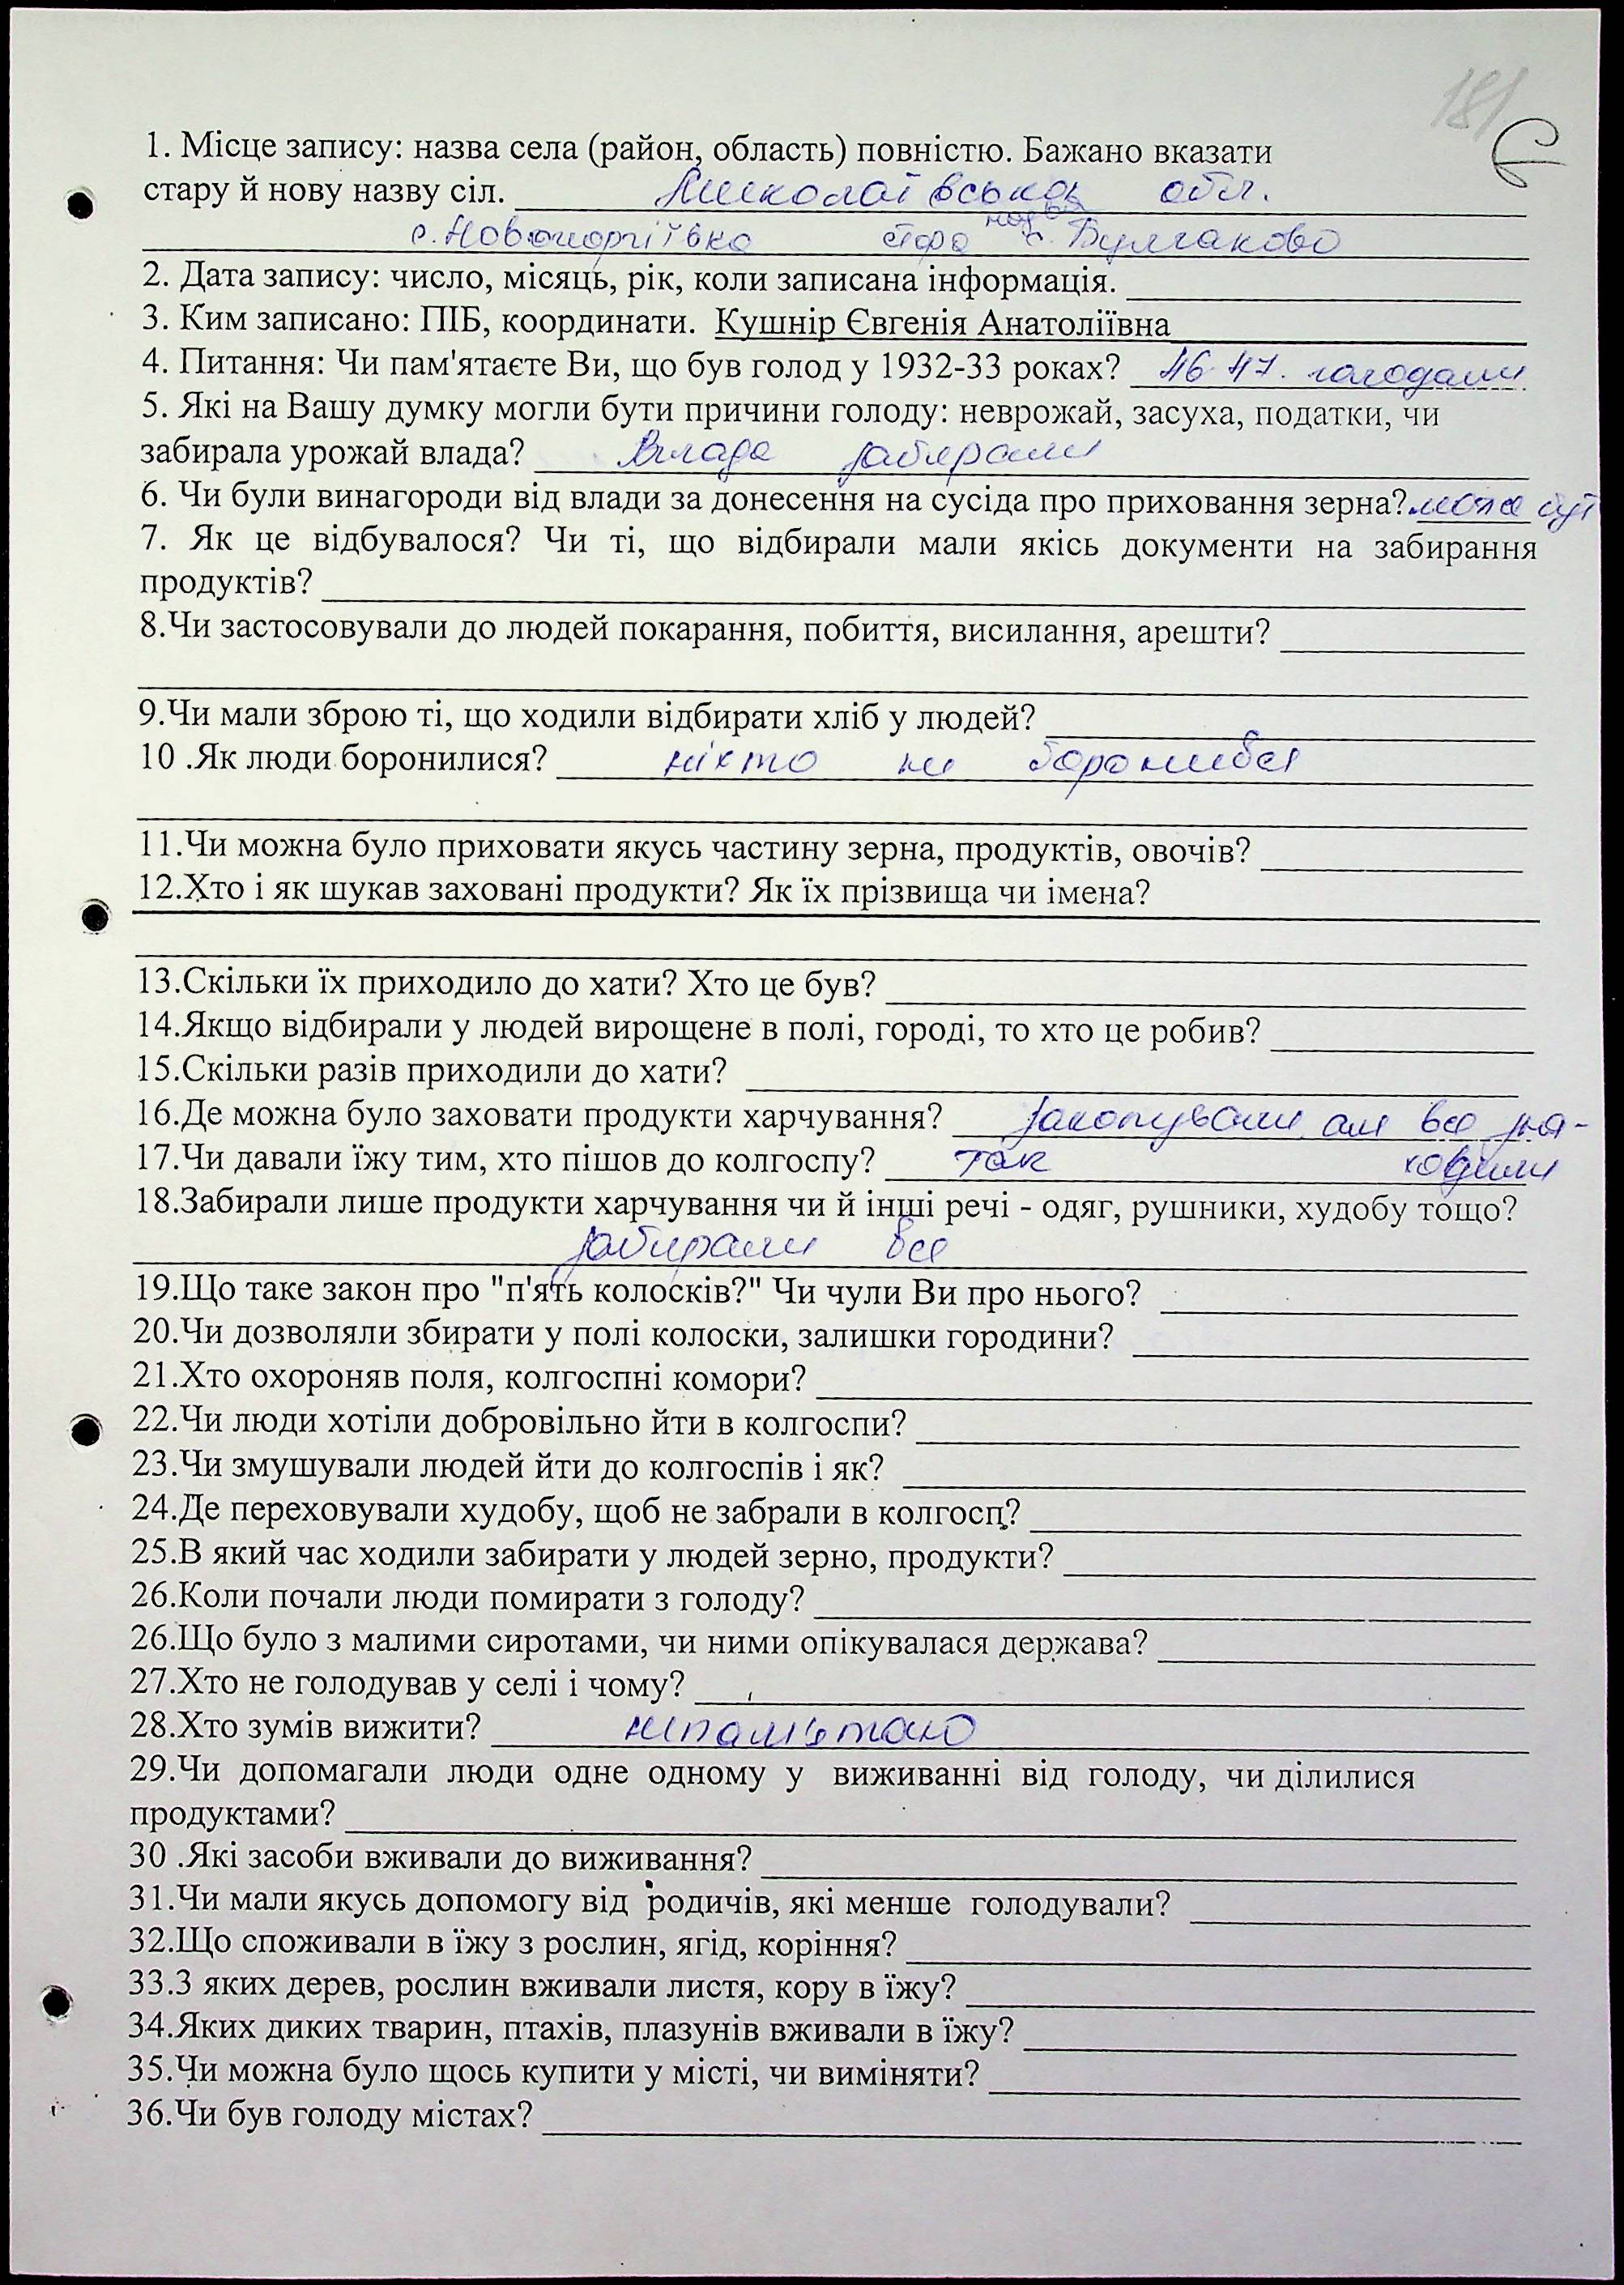 181
Є
1. Місце запису: назва села (район, область) повністю. Бажано вказати
стару й нову назву сіл. Миколаївська обл.
с. Новогоргіївка стара назва с. Булгаково
2. Дата запису: число, місяць, рік, коли записана інформація.
3. Ким записано: ПІБ, координати. Кушнір Євгенія Анатоліївна
4. Питання: Чи пам'ятаєте Ви, що був голод у 1932-33 роках? 46-47. голодали
5. Які на Вашу думку могли бути причини голоду: неврожай, засуха, податки, чи
забирала урожай влада? Влада забирали
6. Чи були винагороди від влади за донесення на сусіда про приховання зерна?
7. Як це відбувалося? Чи ті, що відбирали мали якісь документи на забирання
продуктів?
8.Чи застосовували до людей покарання, побиття, висилання, арешти?
9.Чи мали зброю ті, що ходили відбирати хліб у людей?
10 .Як люди боронилися? ніхто не боронився
11.Чи можна було приховати якусь частину зерна, продуктів, овочів?
12.Хто і як шукав заховані продукти? Як їх прізвища чи імена?
13.Скільки їх приходило до хати? Хто це був?
14.Якщо відбирали у людей вирощене в полі, городі, то хто це робив?
15.Скільки разів приходили до хати?
16.Де можна було заховати продукти харчування? закопували але все зна-
17.Чи давали їжу тим, хто пішов до колгоспу? так ходили
18.Забирали лише продукти харчування чи й інші речі - одяг, рушники, худобу тощо?
забирали все
19.Що таке закон про "п'ять колосків?" Чи чули Ви про нього?
20.Чи дозволяли збирати у полі колоски, залишки городини?
21.Хто охороняв поля, колгоспні комори?
22.Чи люди хотіли добровільно йти в колгоспи?
23.Чи змушували людей йти до колгоспів і як?
24.Де переховували худобу, щоб не забрали в колгосп?
25.В який час ходили забирати у людей зерно, продукти?
26.Коли почали люди помирати з голоду?
26.Що було з малими сиротами, чи ними опікувалася держава?
27.Хто не голодував у селі і чому?
28.Хто зумів вижити? непамятаю
29.Чи допомагали люди одне одному у виживанні від голоду, чи ділилися
продуктами?
30 .Які засоби вживали до виживання?
31.Чи мали якусь допомогу від родичів, які менше голодували?
32.Що споживали в їжу з рослин, ягід, коріння?
33.З яких дерев, рослин вживали листя, кору в їжу?
34.Яких диких тварин, птахів, плазунів вживали в їжу?
35.Чи можна було щось купити у місті, чи виміняти?
36.Чи був голоду містах?